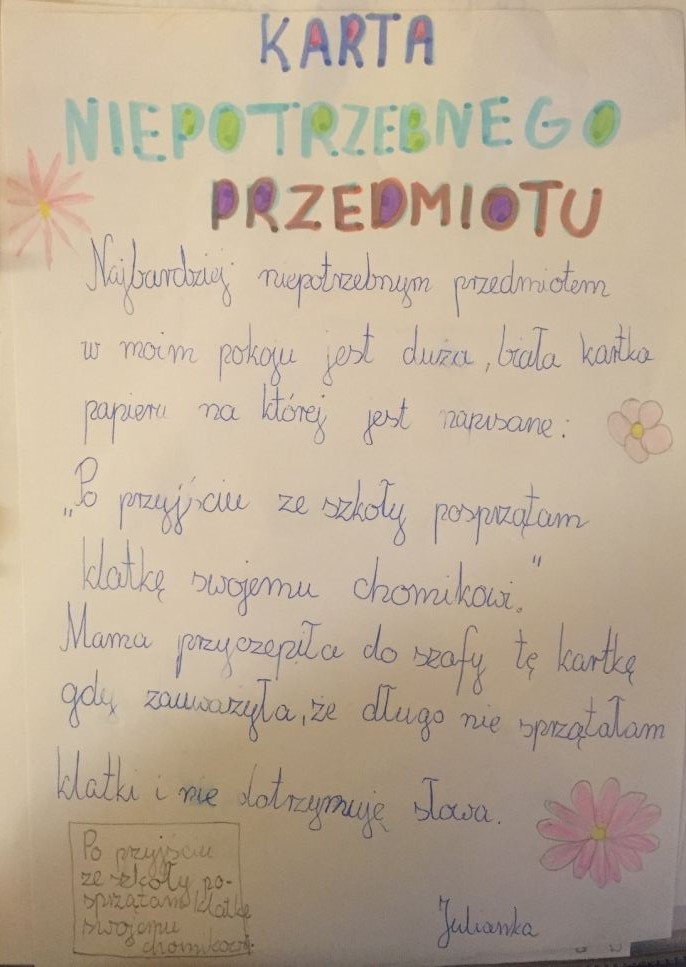 KARTA
NIEPOTRZEBNEGO
PRZEDMIOTU
Najbardziej niepotrzebnym przedmiotem
w moim pokoju jest duża, biała kartka
papieru na której jest napisane:
„Po przyjściu ze szkoły posprzątam
klatkę swojemu chomikowi."
Mama przyczepiła do szafy tę kartkę
gdy zauważyła, że długo nie sprzątałam
klatki i nie dotrzymuję słowa.
Po przyjściu
ze szkoły po-
sprzątam klatkę
swojemu
chomikowi.
Julianka